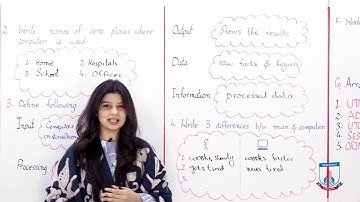 2. Write names of some places where
computer is used.
1. Home
2. Hospitals
3. School
4. Offices
3. Define following.
Input
Computer
instruction
Processing
Output
Shows the results
Data
raw facts & figures
Information
processed data
4. Write 3 differences b/w man & computer
1. works slowly
works faster
2. gets tired
never tired
3.
F. Write
G.
1. UT
2. AD
3. UTO
4. SES
5. ORIN